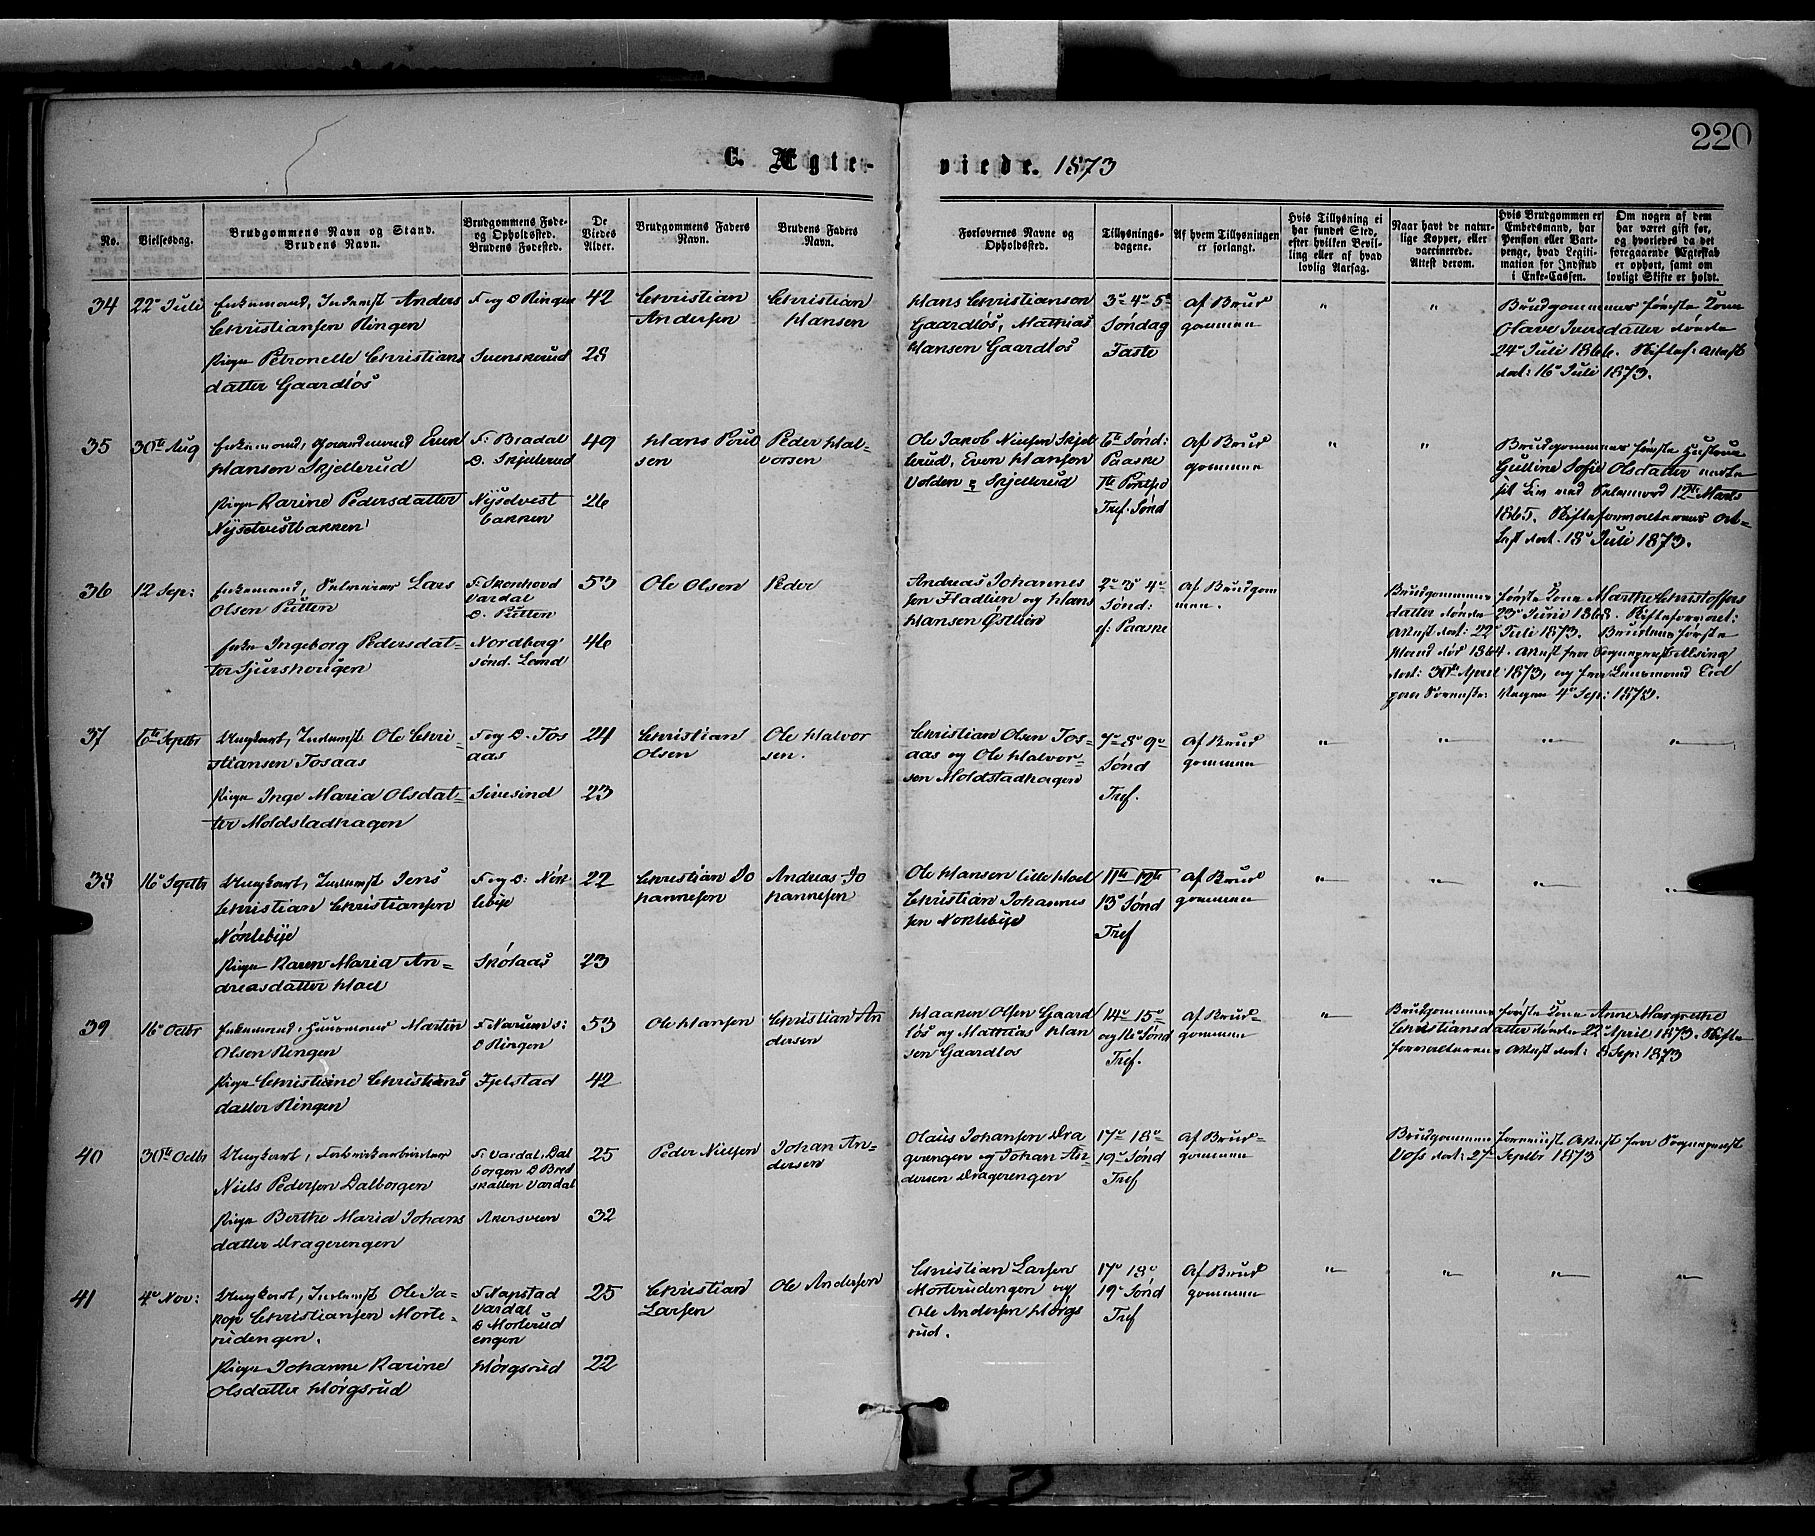 220
C. Ægte-
viede. 1873
No.
Vielsesdag.
Brudgommens Navn og Stand.
Brudens Navn.
Brudgommens Føde-
og Opholdssted.
Brudens Fødested.
De
Viedes
Alder.
Brudgommens Faders
Navn.
Brudens Faders
Navn.
Forlovernes Navne og
Opholdssted.
Tillysnings-
dagene.
Af hvem Tillysningen
er forlangt.
Hvis Tillysning ei
har fundet Sted,
efter hvilken Bevil-
ling eller af hvad
lovlig Aarsag.
Naar havt de natur-
lige Kopper, eller
vaccinerede.
Attest derom.
Hvis Brudgommen er
Embedsmand, har
Pension eller Vart-
penge, hvad Legiti-
mation for Indskud
i Enke-Cassen.
Om nogen af dem
har været gift før,
og hvorledes da det
foregaaende Ægteskab
er ophørt, samt om
lovligt Skifte er holdt.
34
22de Juli
Enkemand, Inderst Anders
Christiansen Ringen
Pige Petronelle Christians
datter Gaardløs
F og O Ringen
Svenskerud
42
28
Christian
Andersen
Christian
Hansen
Hans Christiansen
Gaardløs, Mathias
Hansen Gaardløs
3de 4de 5te
Søndag
Faste
af Brud
gommen
"
"
Brudgommens første Kone
Olave Iversdatter døde
24de Juli 1866. Skiftef: Attest
dat: 16de Juli 1873.
35
30te Aug
Enkemand, Gaardmand Even
Hansen Skjellerud
Pige Karine Pedersdatter
Nysetvestbakken
F: Bradal
O. Skjellerud
Nysetvest
bakken
49
26
Hans Poul
sen
Peder Hal-
vorsen
Ole Jakob Nielsen Skjel
lerud, Even Hansen
Volden Skjellerud
6te Sønd:
Paaske
Tref. Sønd
af Brud
gommen
"
"
Brudgommens første Hustrue
Gulline Sofie Olsdatter endte
sit Liv ved Selvmord 12te Marts
1865. Skifteforvalterens At-
test dat. 18de Juli 1873.
36
12 Sep:
Enkemand, Selveier Lars
Olsen Pütten
Enke Ingeborg Pedersdat-
ter Sjurshougen
F: Skonhovd
Vardal
O. Pütten
Nordberg
sønd. Land
53
46
Ole Olsen
Peder
Andreas Johannes
sen Fladlien og Hans
Hansen Østlien
2de 3de 4de
Sønd:
ef: Paaske
af Brudgom
men.
Brudgommens første Kone Marthe Christoffers
datter døde 23de Juni 1868. Skifteforvalt:
Attest dat: 22de Juli 1873. Brudens første
Mand død 1864. Attest fra Sognepræst
dat: 30te April 1873, og fra Lensmand
4de Sep: 1873.
37
6te Septbr
Ungkarl, Inderst Ole Chri-
stiansen Tosaas
Pige Inge Maria Olsdat-
ter Moldstadhagen
F og O. Tos
aas
Sivesind
24
23
Christian
Olsen
Ole Halvor
sen.
Christian Olsen Tos-
aas og Ole Halvor-
sen Moldstadhagen
7de 8de 9de
Sønd
Tref.
af Brud
gommen
"
"
"
"
38
16de Septbr
Ungkarl, Inderst Jens
Christian Christiansen
Nøklebye
Pige Karen Maria An-
dreasdatter Hoel
F og O: Nøk
lebye
Skølaas
22
23
Christian Jo
hannesen
Andreas Jo
hannesen
Ole Hansen lille Hoel
Christian Johannes
sen Nøklebye
11te 12te
13de Sønd
Tref
af Brud
gommen
"
"
"
"
39
16de Octbr
Enkemand, Huusmand Martin
Olsen Ringen
Pige Christiane Christians
datter Ringen
F Narum s:
O Ringen
Fjelstad
53
42
Ole Hansen
Christian An
dersen
Haaken Olsen Gaard
løs og Mathias Han
sen Gaardløs
14de 15de
og 16de Sønd
Tref.
af Brud-
gommen
"
Brudgommens første Kone Anne Margrethe
Christiansdatter døde 22de April 1873. Skifte
forvalterens Attest dat: 8 Sep: 1873
40
30te Octbr
Ungkarl, Fabrikarbeider
Niels Pedersen Dalborgen
Pige Berthe Maria Johans
datter Dragerengen
F: Vardal. Dal
borgen O Bred
skallen Vardal
Akersveen
25
32
Peder Nielsen
Johan An-
dersen
Olaus Johansen Dra
gerengen og Johan An-
dersen Dragerengen
17de 18de
19de Sønd
Tref
af Brud-
gommen
Brudgommen foreviist Attest fra Sognepræst
Voss dat: 27de Septbr 1873
41
4de Nov:
Ungkarl, Inderst Ole Ja-
kop Christiansen Morte-
rudengen.
Pige Johanne Karine
Olsdatter Hørgsrud
F Kapstad
Vardal
O Morterud
engen
Hørgsrud
25
22
Christian
Larsen
Ole Andersen
Christian Larsen
Morterudengen og
Ole Andersen Hørgs
rud.
17de 18de
19de Sønd
Tref
af Brud
gommen
"
"
"
"